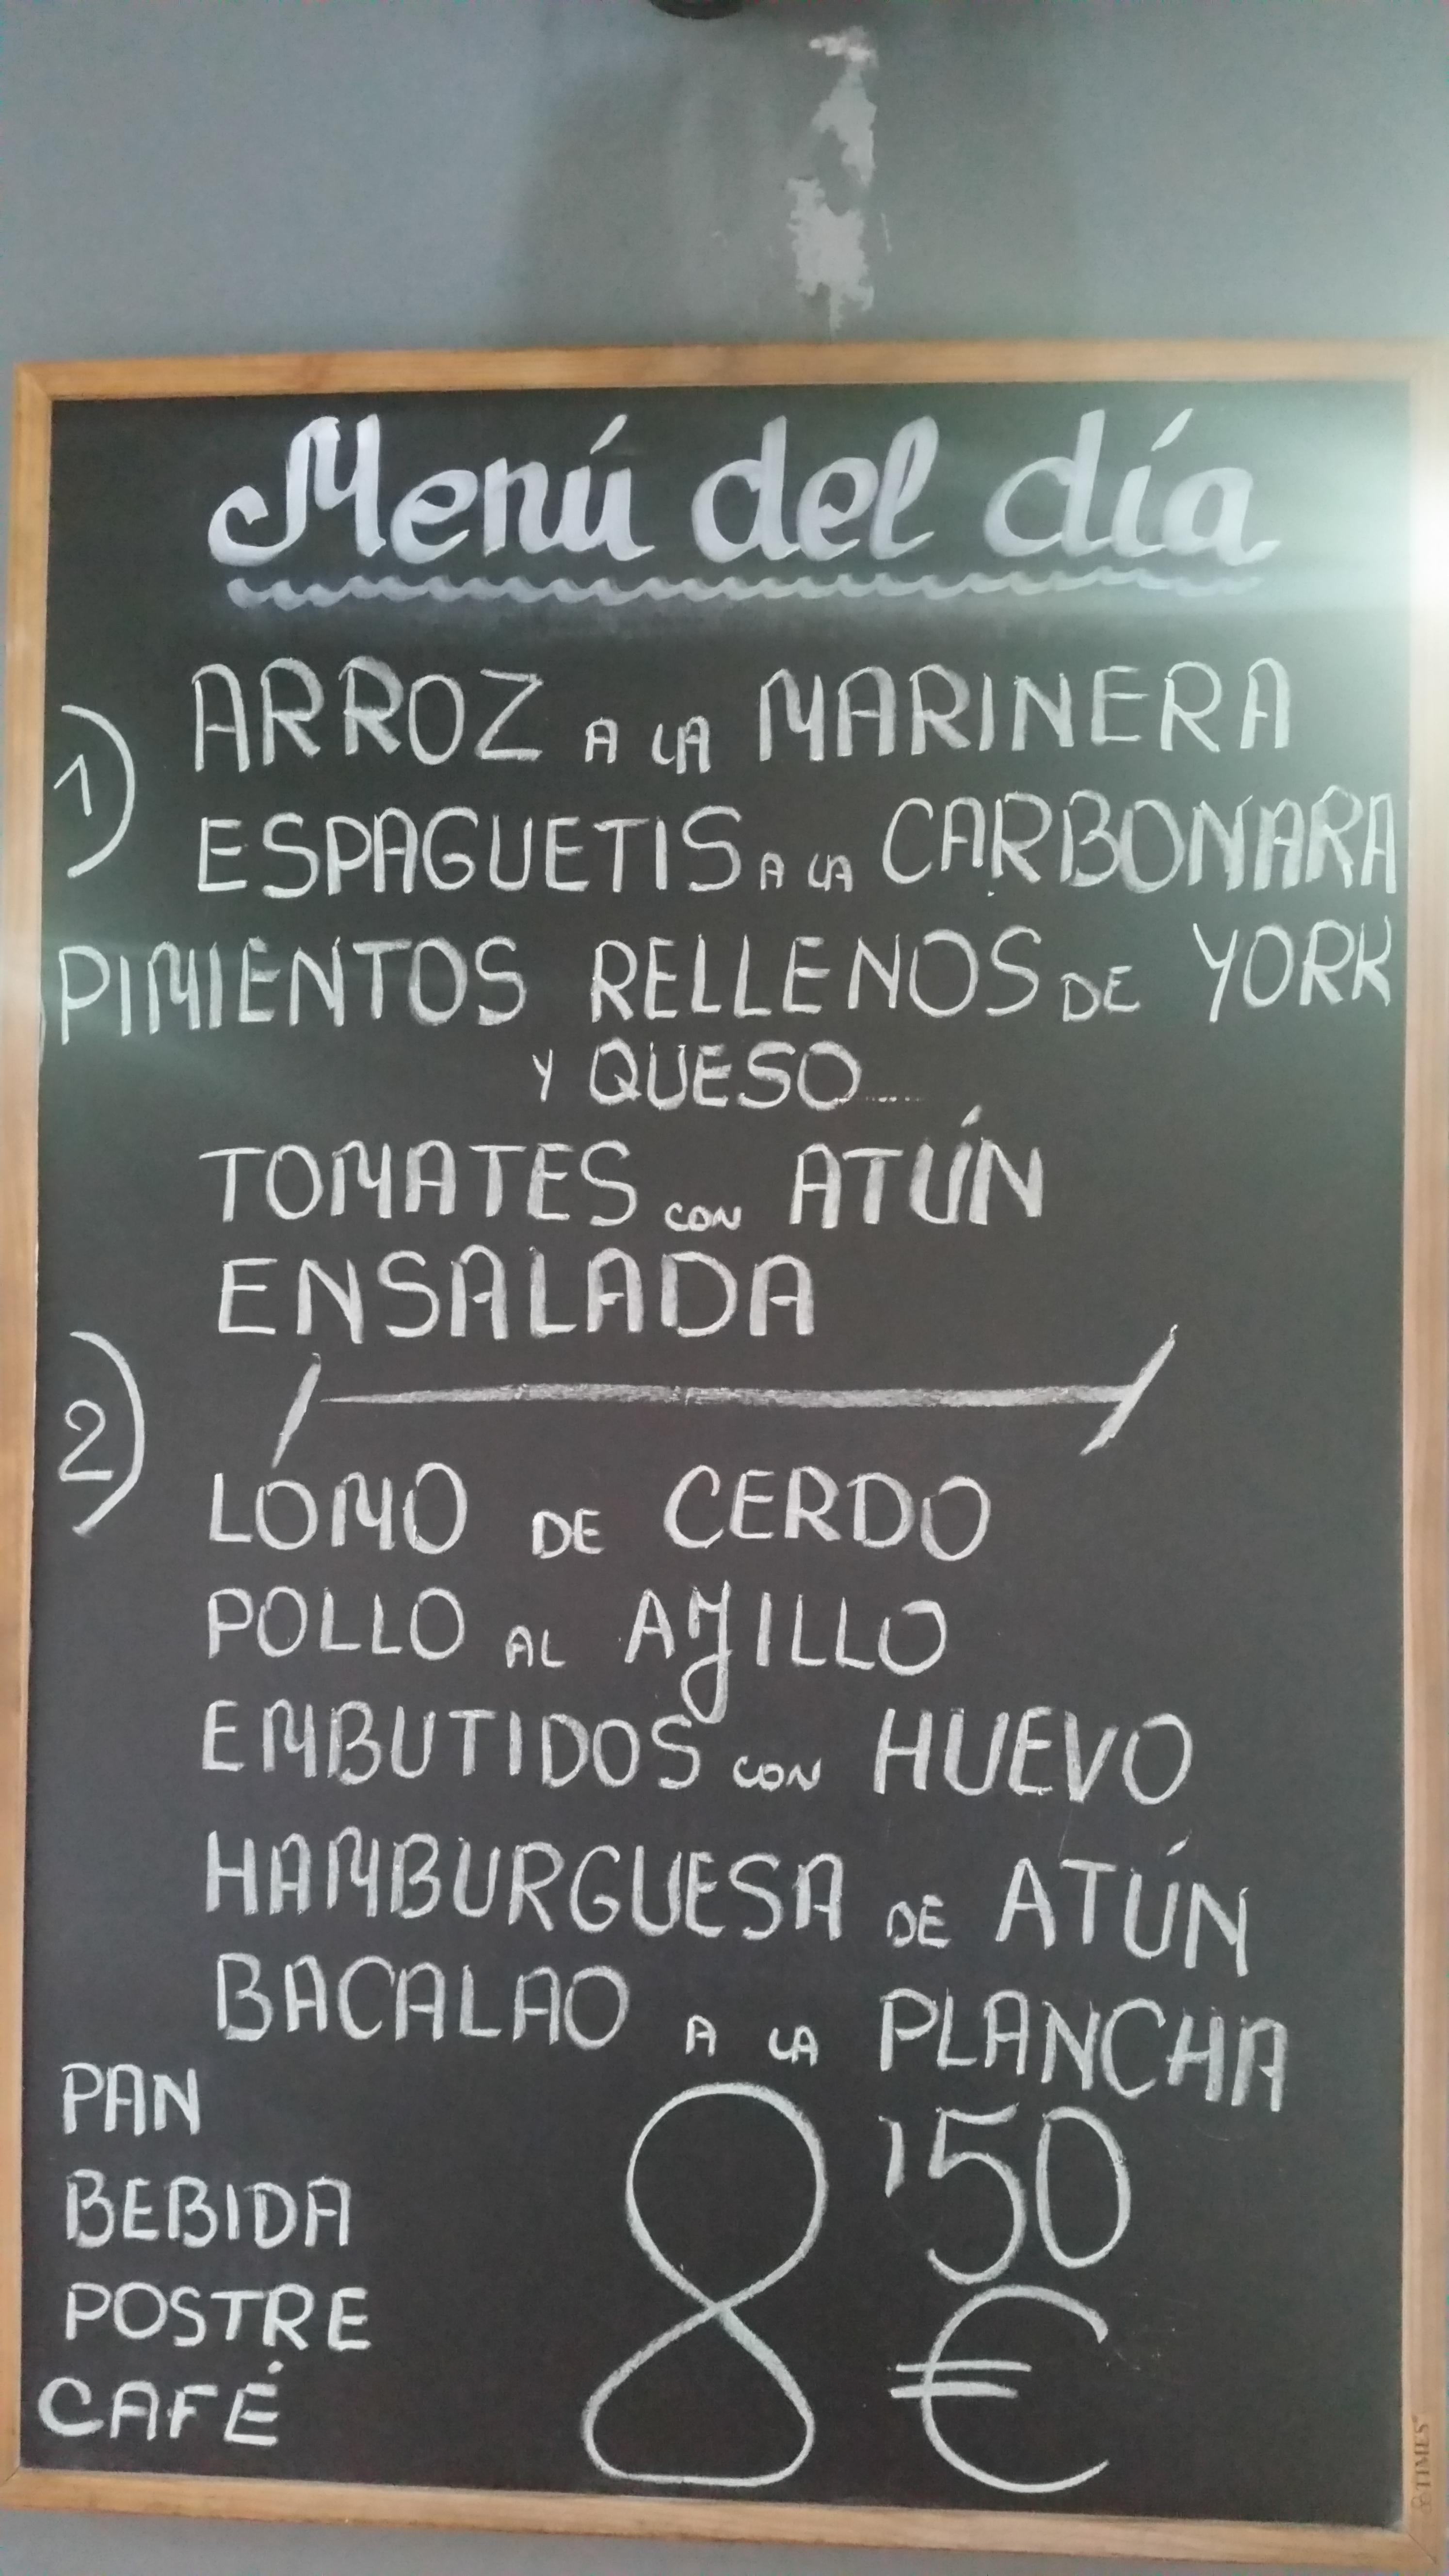 Menú del día
1) ARROZ A LA MARINERA
ESPAGUETIS A LA CARBONARA
PIMIENTOS RELLENOS DE YORK
Y QUESO
TOMATES CON ATÚN
ENSALADA
2)
LOMO DE CERDO
POLLO AL AJILLO
EMBUTIDOS CON HUEVO
HAMBURGUESA DE ATÚN
BACALAO A LA PLANCHA
PAN
BEBIDA
POSTRE
CAFÉ
8'50
€
TIMES